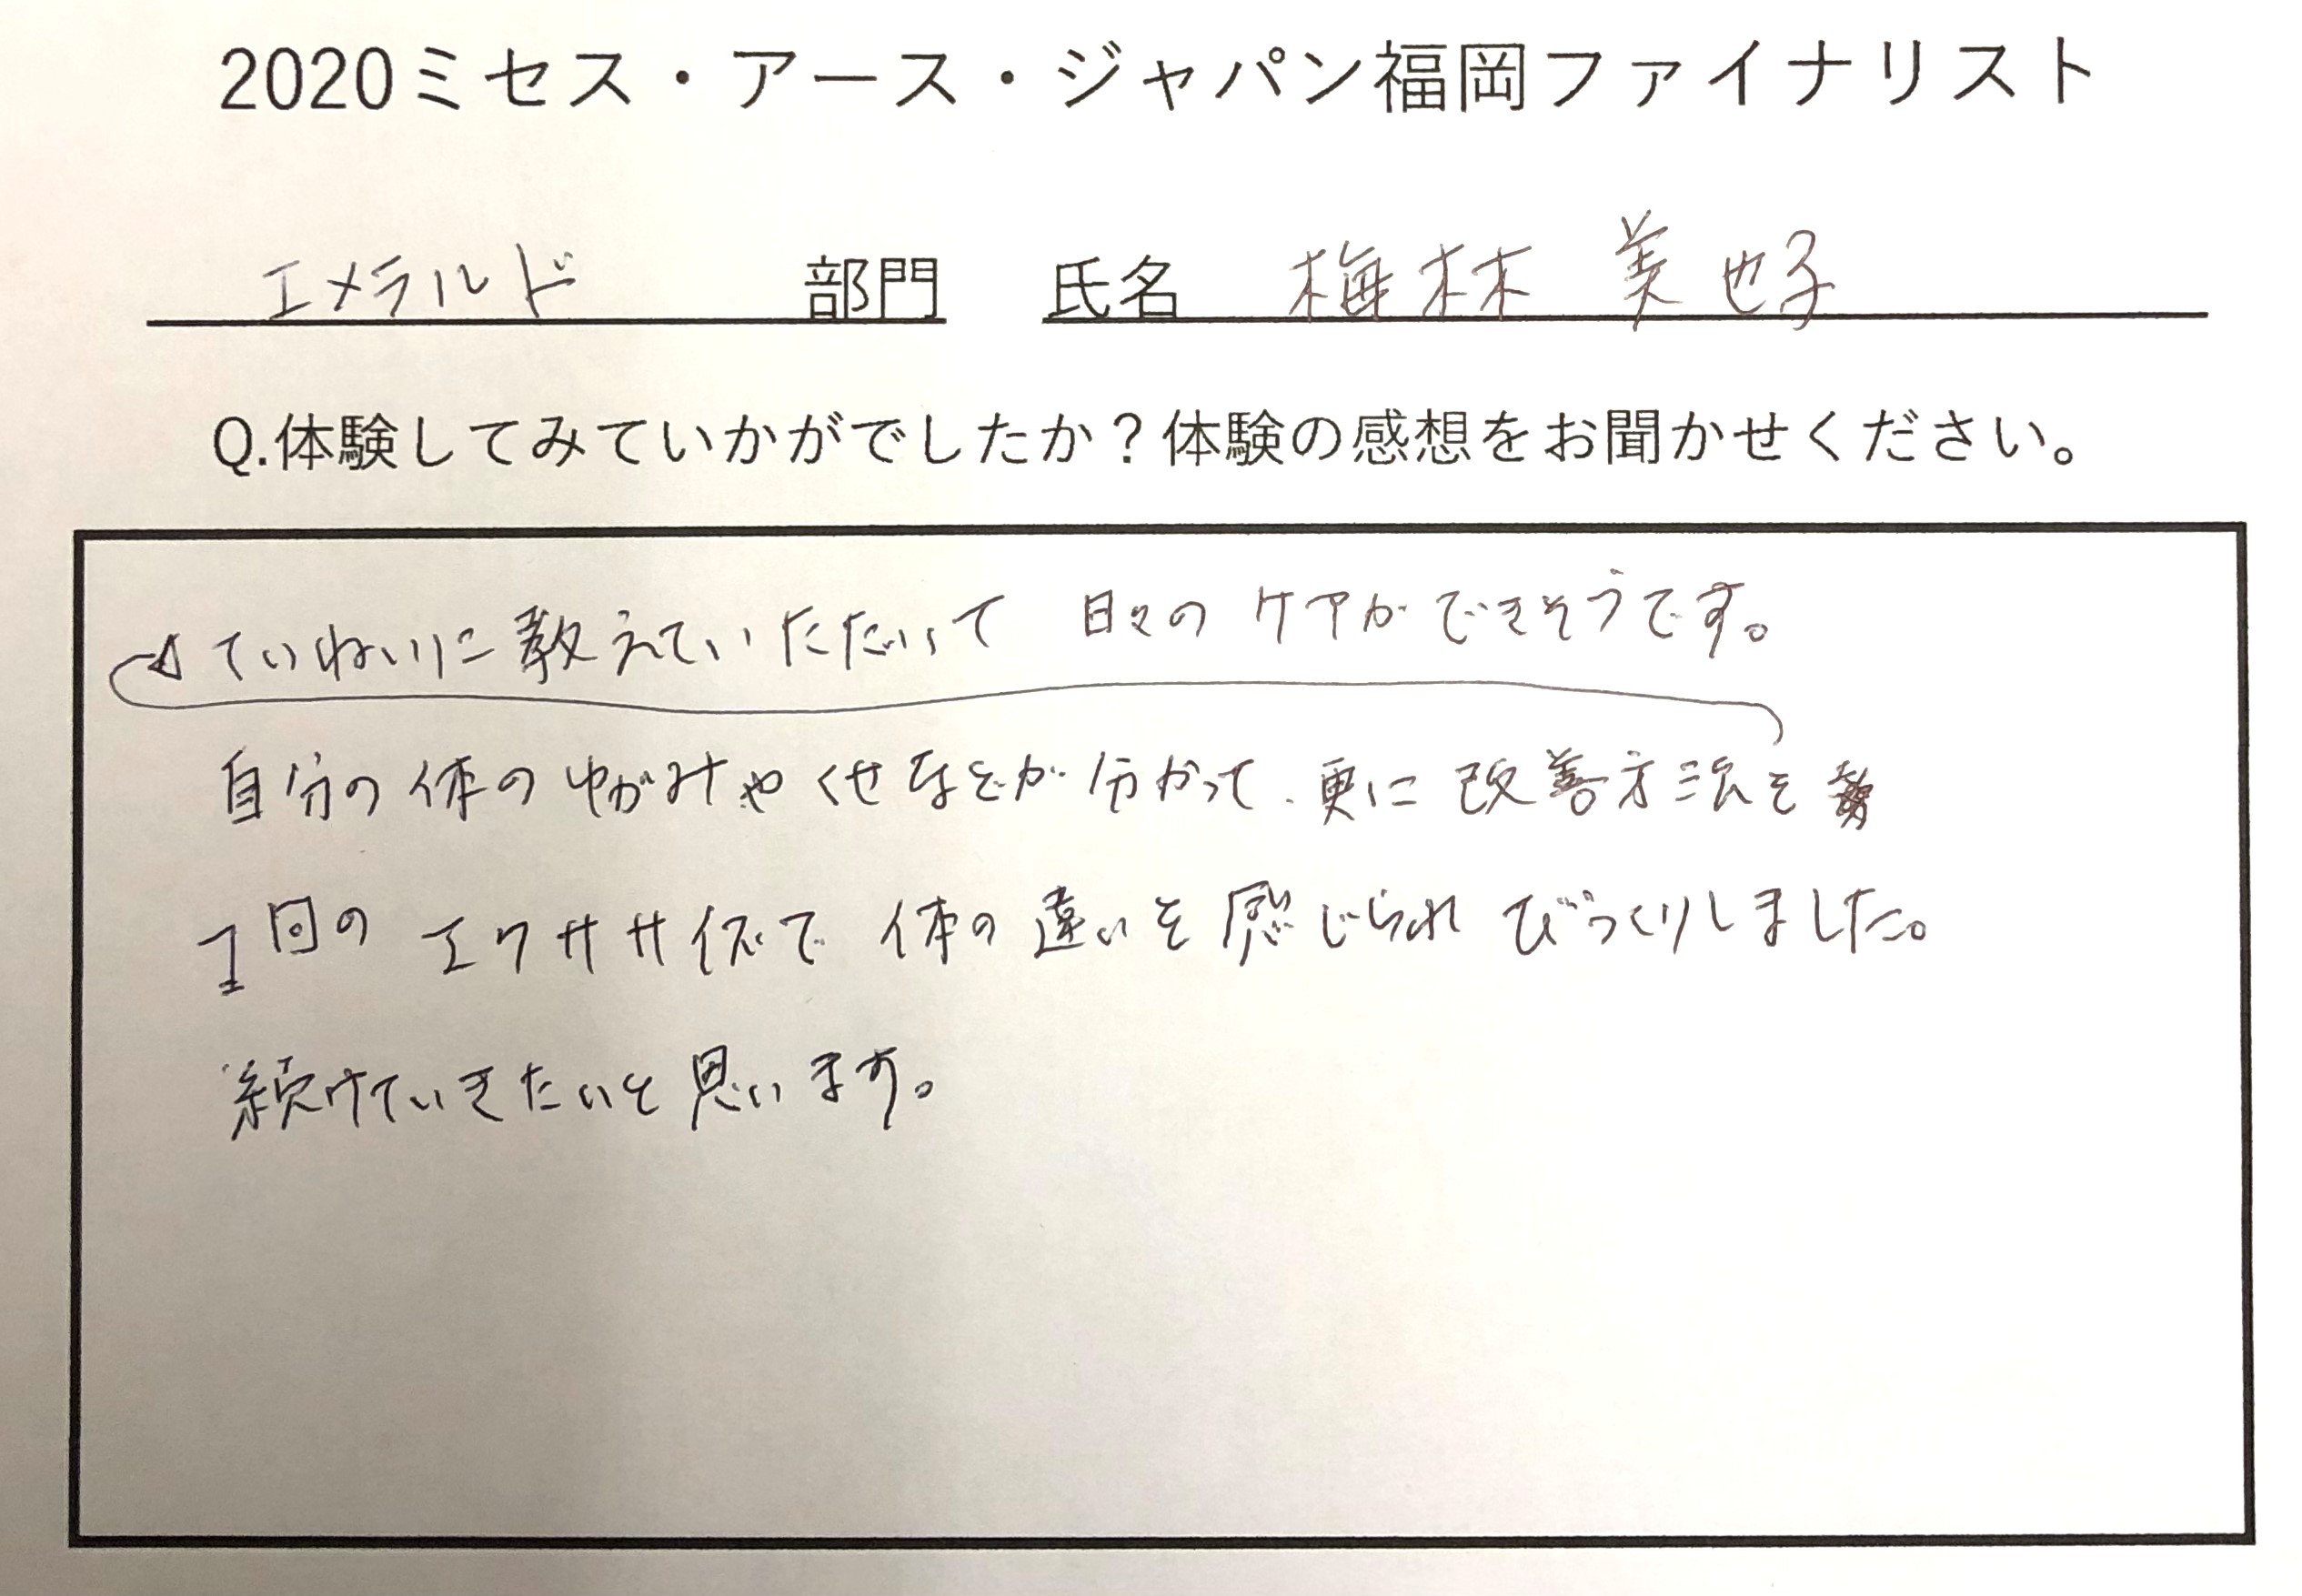 2020ミセス・アース・ジャパン福岡ファイナリスト
エメラルド 部門 氏名 梅林 美也子
Q.体験してみていかがでしたか？体験の感想をお聞かせください。
ていねいに教えていただいて 日々の ケアができそうです。
自分の体のゆがみやくせなどが分かって、更に改善方法を
1回の エクササイズで 体の違いを感じられ びっくりしました。
続けていきたいと思います。